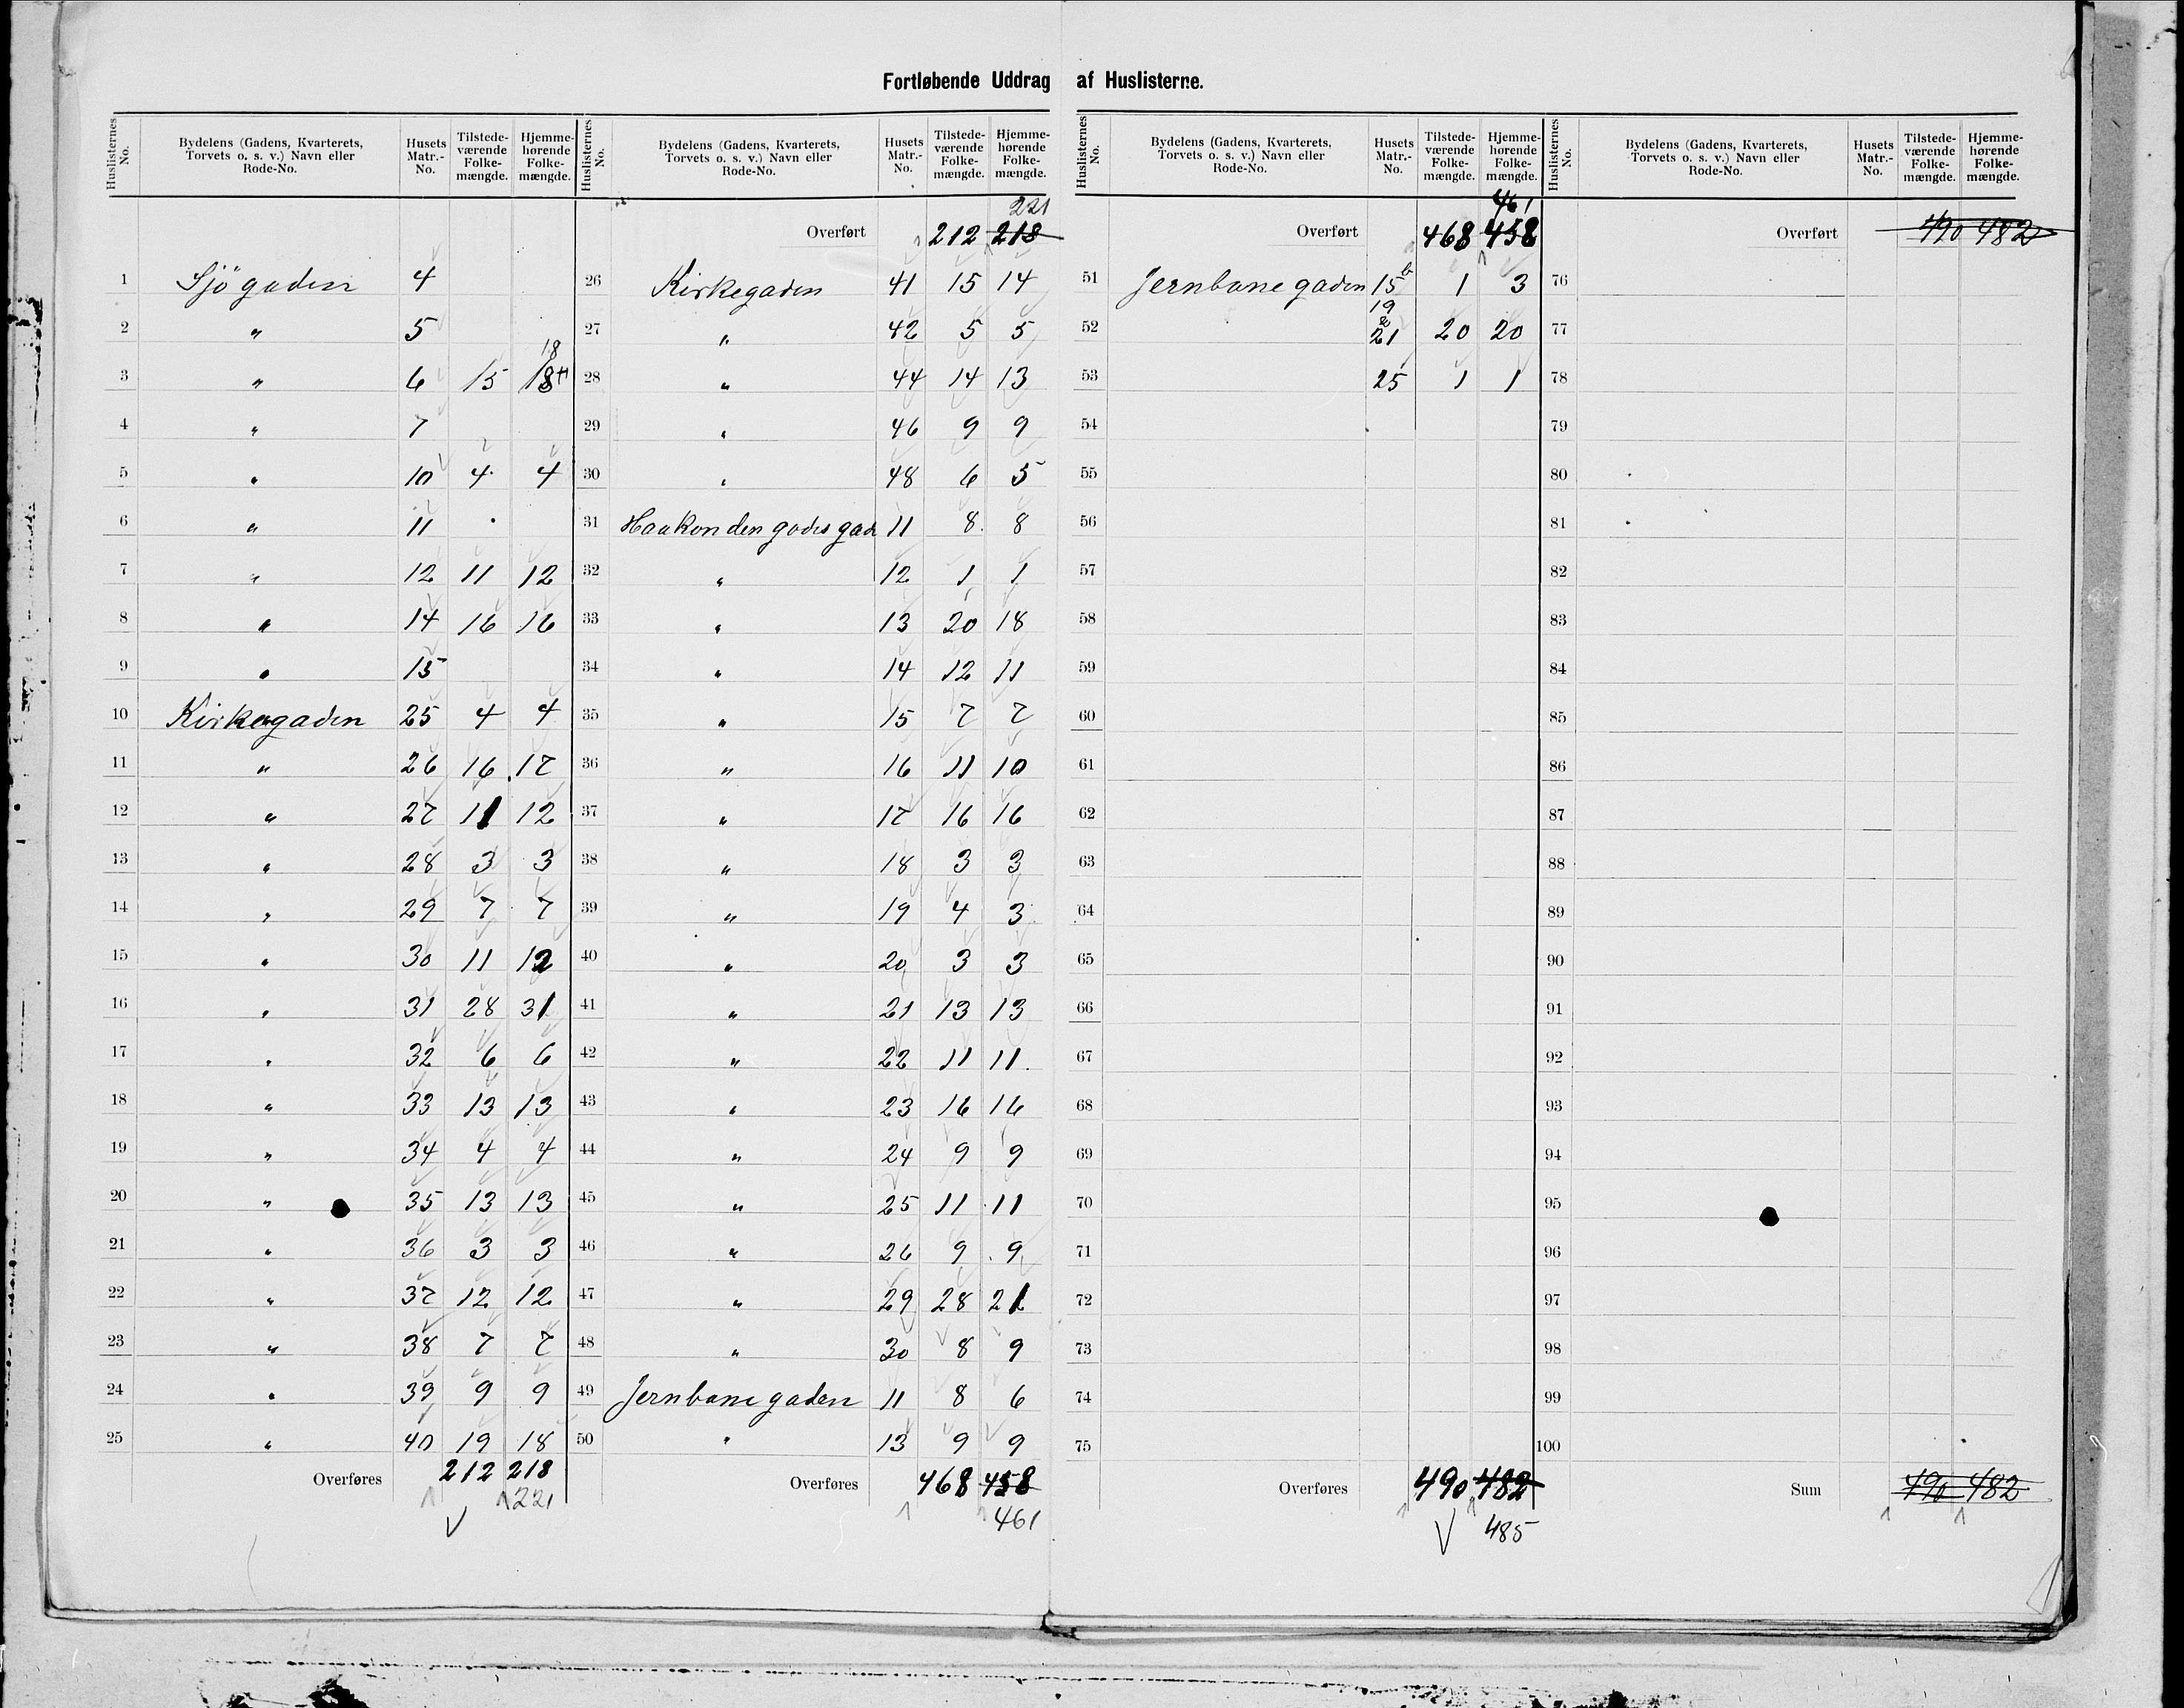 Fortløbende Uddrag af Huslisterne.
Huslisternes No. | Bydelens (Gadens, Kvarterets, Torvets o. s. v.) Navn eller Rode-No. | Husets Matr.-No. | Tilstedeværende Folkemængde. | Hjemmehørende Folkemængde.
1 Sjögaden 4
2 " 5
3 " 6 15 18
4 " 7
5 " 10 4 4
6 " 11
7 " 12 11 12
8 " 14 16 16
9 " 15
10 Kirkegaden 25 4 4
11 " 26 16 17
12 " 27 11 12
13 " 28 3 3
14 " 29 7 7
15 " 30 11 12
16 " 31 28 31
17 " 32 6 6
18 " 33 13 13
19 " 34 4 4
20 " 35 13 13
21 " 36 3 3
22 " 37 12 12
23 " 38 7 7
24 " 39 9 9
25 " 40 19 18
Overføres 212 218
221
Huslisternes No. | Bydelens (Gadens, Kvarterets, Torvets o. s. v.) Navn eller Rode-No. | Husets Matr.-No. | Tilstedeværende Folkemængde. | Hjemmehørende Folkemængde.
221
Overført 212 218
26 Kirkegaden 41 15 14
27 " 42 5 5
28 " 44 14 13
29 " 46 9 9
30 " 48 6 5
31 Haakon den godes gad 11 8 8
32 " 12 1 1
33 " 13 20 18
34 " 14 12 11
35 " 15 7 7
36 " 16 11 10
37 " 17 16 16
38 " 18 3 3
39 " 19 4 3
40 " 20 3 3
41 " 21 13 13
42 " 22 11 11
43 " 23 16 16
44 " 24 9 9
45 " 25 11 11
46 " 26 9 9
47 " 29 28 21
48 " 30 8 9
49 Jernbanegaden 11 8 6
50 " 13 9 9
Overføres 468 458
461
Huslisternes No. | Bydelens (Gadens, Kvarterets, Torvets o. s. v.) Navn eller Rode-No. | Husets Matr.-No. | Tilstedeværende Folkemængde. | Hjemmehørende Folkemængde.
461
Overført 468 458
51 Jernbanegaden 15b 1 3
52 19 & 21 20 20
53 25 1 1
54
55
56
57
58
59
60
61
62
63
64
65
66
67
68
69
70
71
72
73
74
75
Overføres 490 482
485
Huslisternes No. | Bydelens (Gadens, Kvarterets, Torvets o. s. v.) Navn eller Rode-No. | Husets Matr.-No. | Tilstedeværende Folkemængde. | Hjemmehørende Folkemængde.
Overført 490 482
76
77
78
79
80
81
82
83
84
85
86
87
88
89
90
91
92
93
94
95
96
97
98
99
100
Sum 490 482